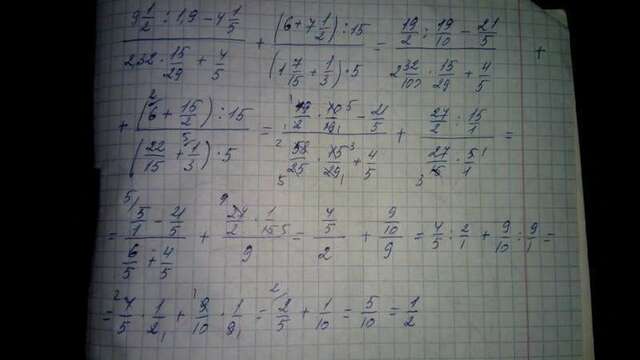 (9 1/2 : 1,9 - 4 1/5) / (2,32 · 15/29 + 4/5) + ((6 + 7 1/2) : 15) / ((1 7/15 + 1/3) · 5) = (19/2 : 19/10 - 21/5) / (2 32/100 · 15/29 + 4/5) +
+ ((6 + 15/2) : 15) / ((22/15 + 1/3) · 5) = (19/2 · 10/19 - 21/5) / (58/25 · 15/29 + 4/5) + (27/2 : 15/1) / (27/15 · 5/1) =
= (5/1 - 21/5) / (6/5 + 4/5) + (27/2 · 1/15) / 9 = (4/5) / 2 + (9/10) / 9 = 4/5 : 2/1 + 9/10 : 9/1 =
= 4/5 · 1/2 + 9/10 · 1/9 = 2/5 + 1/10 = 5/10 = 1/2